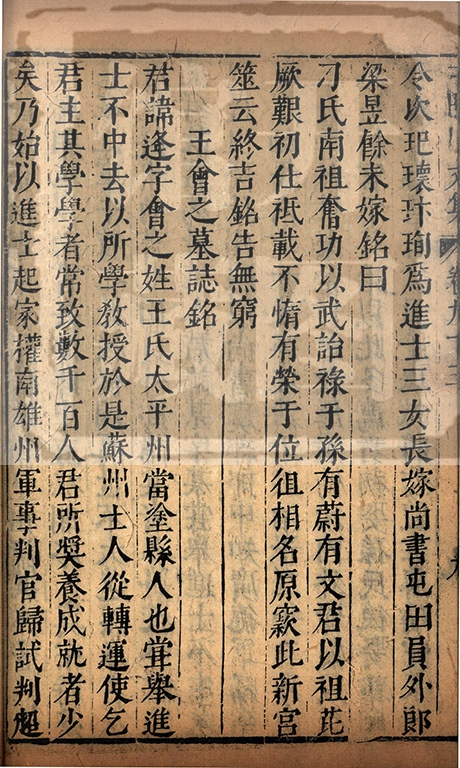 臨川文集 卷九十三 九
令次玘瓌玶珣爲進士三女長嫁尚書屯田員外郎
梁昱餘未嫁銘曰
刁氏南祖奮功以武詒祿于孫有蔚有文君以祖芘
厥艱初仕祗載不惰有榮于位徂相名原窾此新宮
筮云終吉銘告無窮
王會之墓誌銘
君諱逢字會之姓王氏太平州當塗縣人也甞舉進
士不中去以所學教授於是蘇州士人從轉運使乞
君主其學學者常致數千百人君所奬養成就者少
矣乃始以進士起家權南雄州軍事判官歸試判超